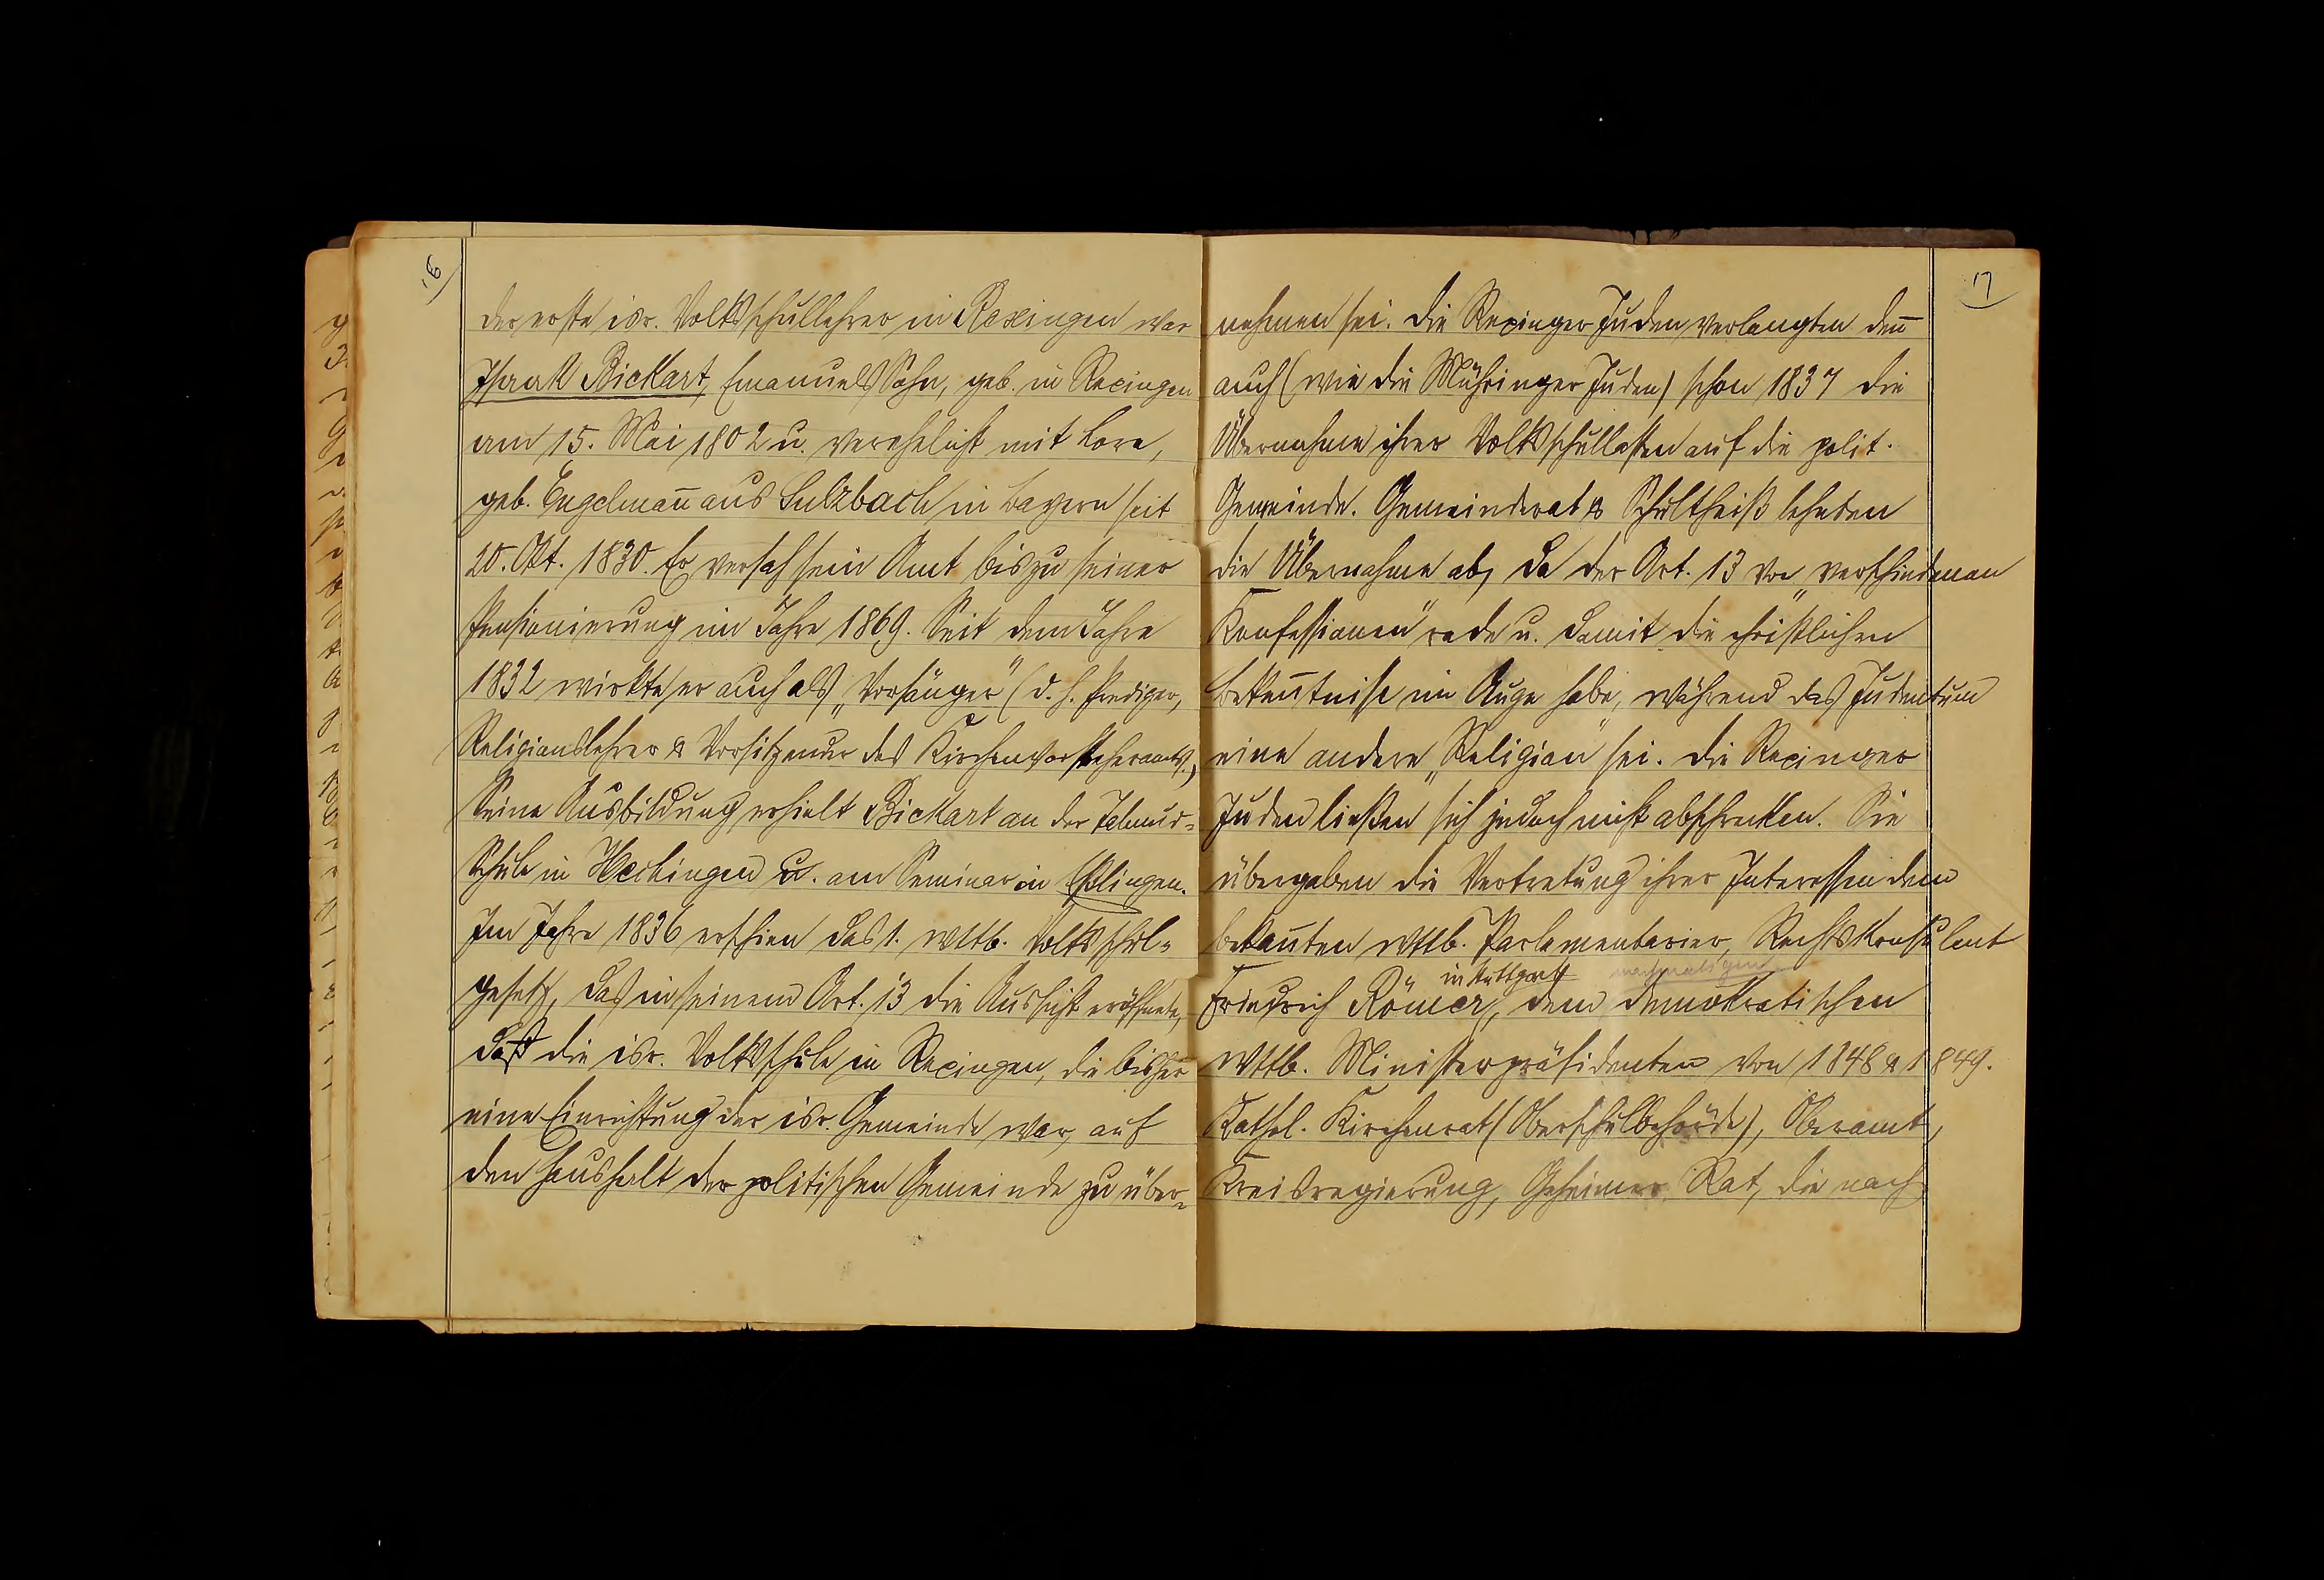 16)
Der erste isr. Volksschullehrer in Rexingen war
Isaak Bickart, Emanuels Sohn, geb. in Rexingen
am 15. Mai 1802 u. verehelicht mit Lore,
geb. Engelman̄ aus Sulzbach in Bayern seit
20. Okt. 1830. Er versah sein Amt bis zu seiner
Pensionierung im Jahre 1869. Seit dem Jahre
1832 wirkte er auch als „Vorsänger" (d. h. Prediger,
Religionslehrer & Vorsitzender des Kirchenvorsteheramts.)
Seine Ausbildung erhielt Bickart an der Talmud-
Schule in Hechingen u. am Seminar in Eßlingen.
Im Jahre 1836 erschien das 1. wttb. Volksschul-
gesetz, das in seinem Art. 13 die Aussicht eröffnete,
daß die isr. Volksschule in Rexingen, die bisher
eine Einrichtung der isr. Gemeinde war, auf
den Haushalt der politischen Gemeinde zu über-
17
nehmen sei. Die Rexinger Juden verlangten den̄
auch (wie die Mühringer Juden) schon 1837 die
Übernahme ihrer Volksschullasten auf die polit.
Gemeinde. Gemeinderat & Schultheiß lehnten
die Übernahme ab, da der Art. 13 von „verschiedenen
Konfessionen" rede u. damit die christlichen
Beken̄tnisse im Auge habe, während das Judentum
eine andere „Religion" sei. Die Rexinger
Juden ließen sich jedoch nicht abschrecken. Sie
übergaben die Vertretung ihrer Interessen dem
bekan̄ten wttb. Parlamentarier, Rechtskonsulent
in Stuttgart nachmaligen
Friedrich Römer, dem demokratischen
wttb. Ministerpräsidenten von 1848 & 1849.
Kathol. Kirchenrat (Oberschulbehörde), Oberamt,
Kreisregierung, Geheimer Rat, die nach